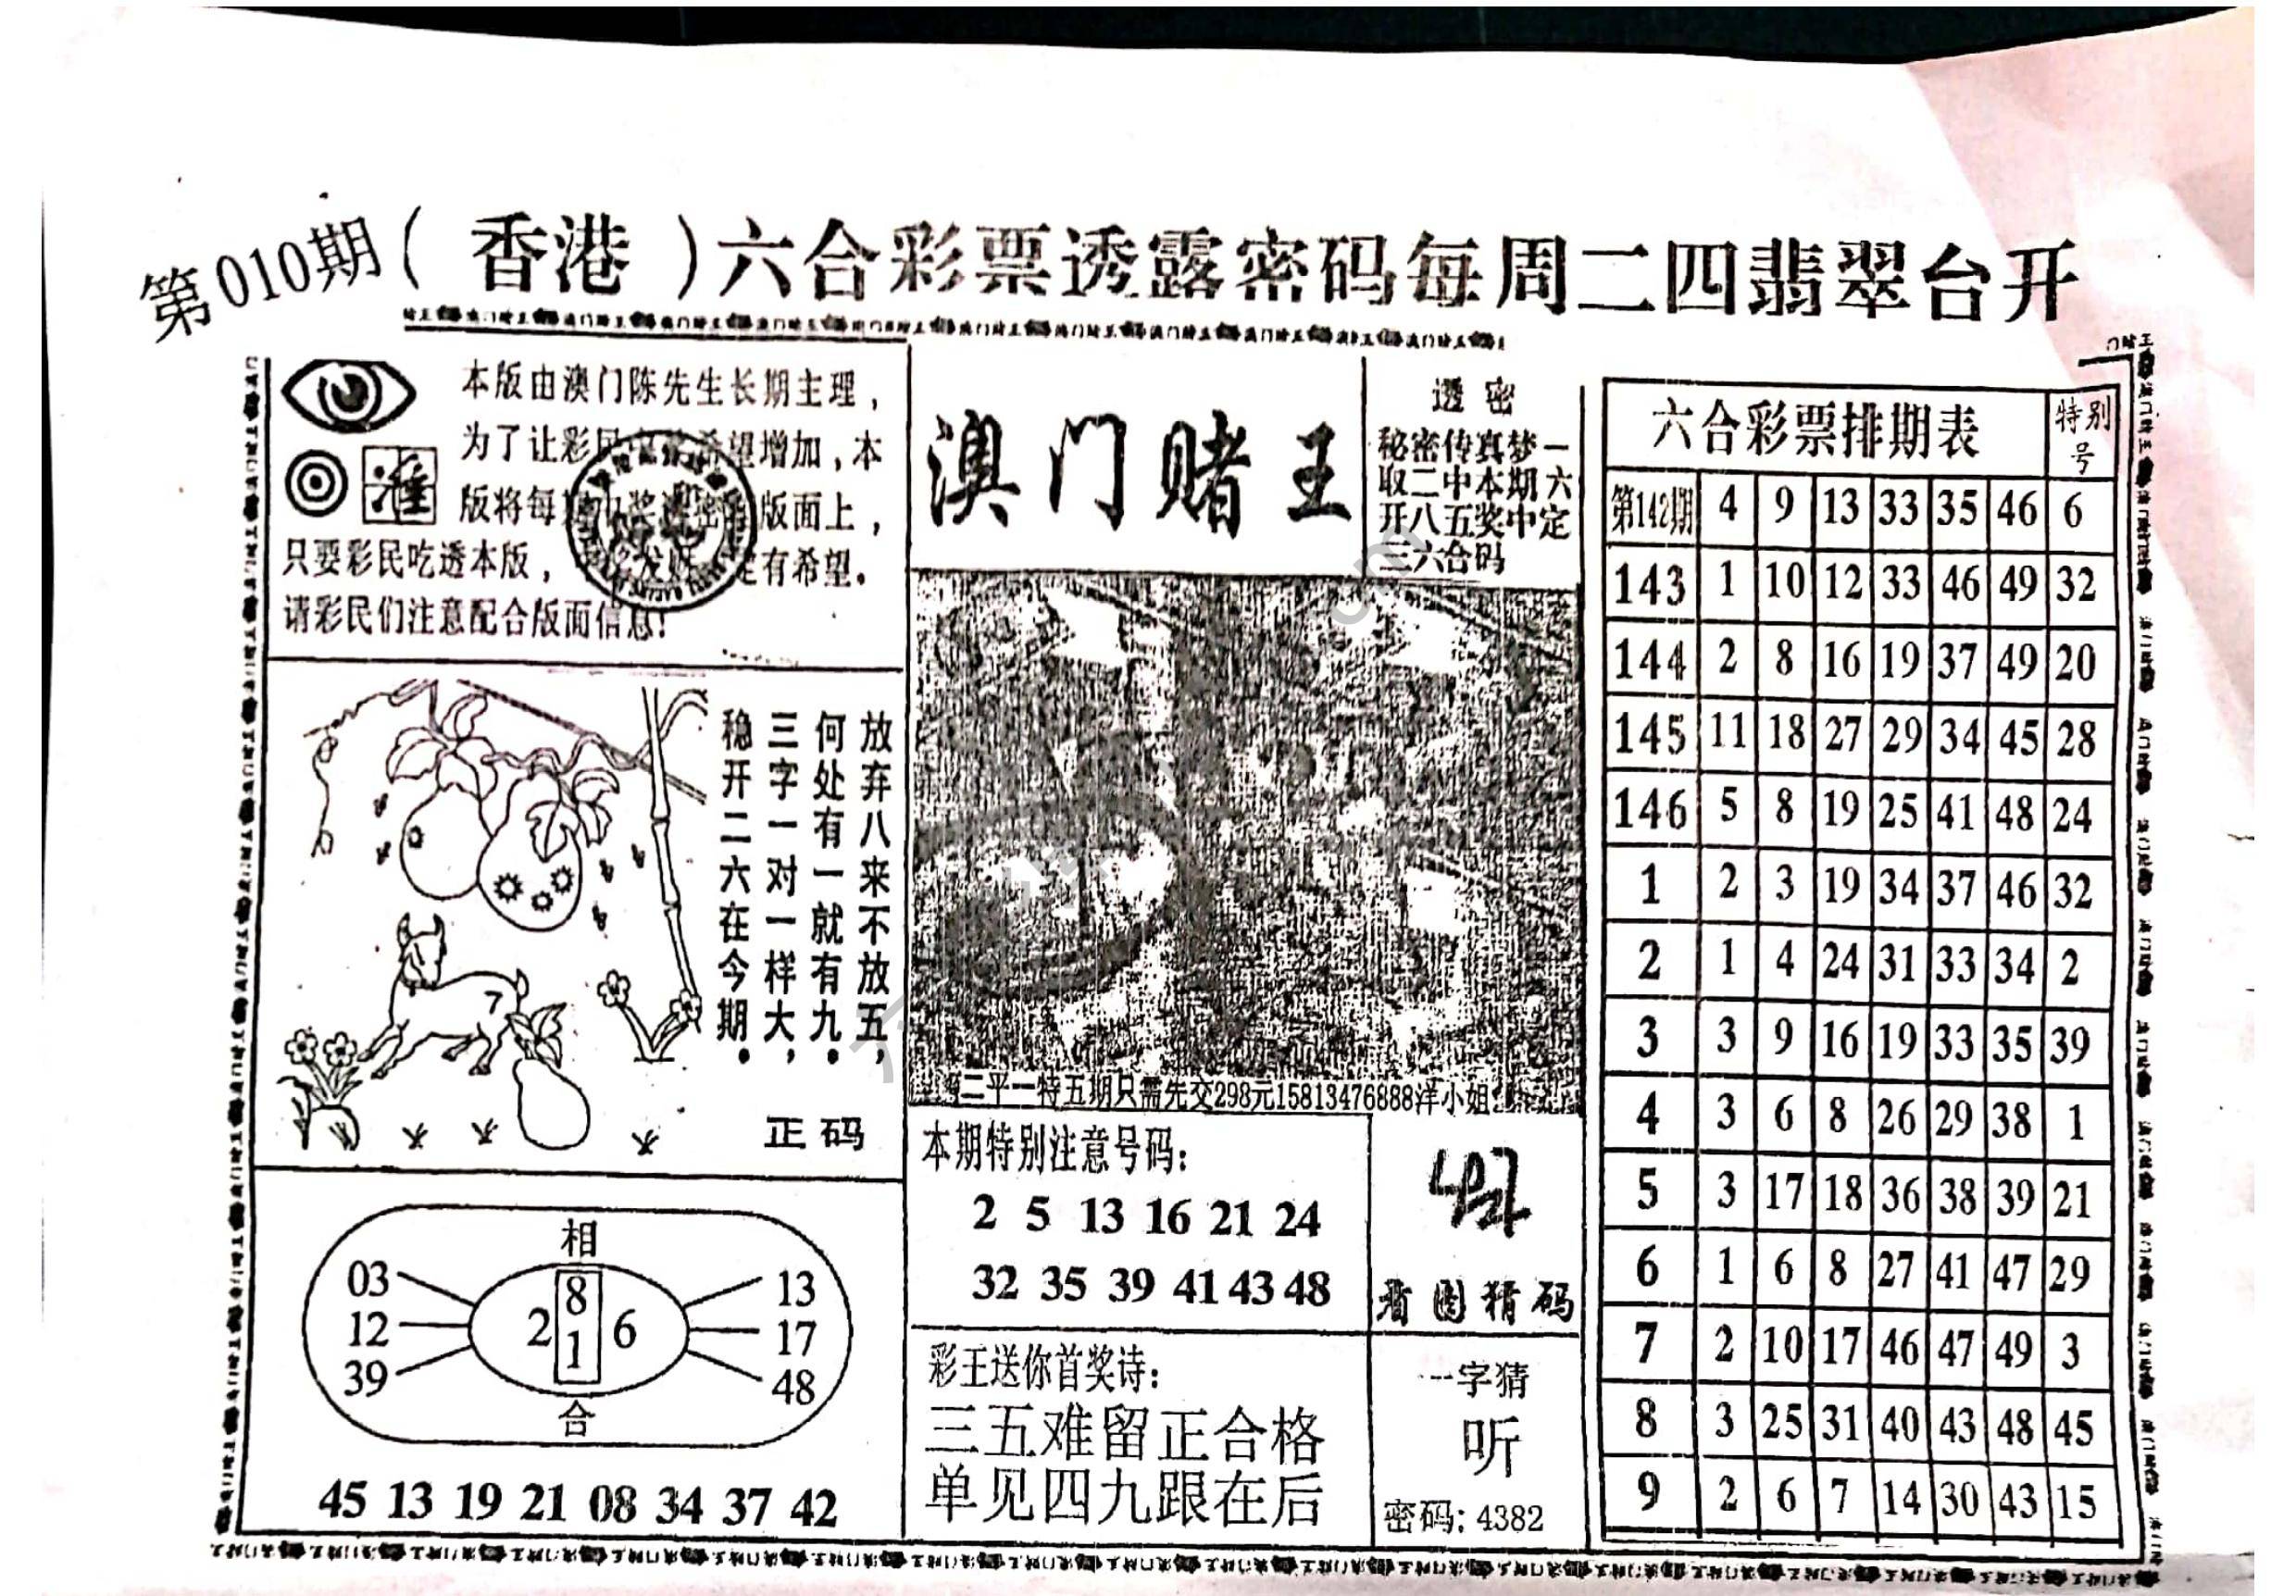 第010期(香港)六合彩票透露密码每周二四翡翠台开
本版由澳门陈先生长期主理，
为了让彩民 希望增加，本
版将每期 奖 密 版面上，
只要彩民吃透本版， 有希望。
请彩民们注意配合版面信息！
准
放弃八来不放五，
何处有一就有九.
三字一对一样大，
稳开二六在今期.
正码
7
相
03 13
12 2 8 1 6 17
39 48
合
45 13 19 21 08 34 37 42
澳门赌王
透密
秘密传真梦一
取二中本期六
开八五奖中定
三六合码
二平一特五期只需先交298元15813476888洋小姐
本期特别注意号码：
2 5 13 16 21 24
32 35 39 41 43 48
看图猜码
彩王送你首奖诗：
三五难留正合格
单见四九跟在后
一字猜
听
密码: 4382
六合彩票排期表 特别号
第142期 4 9 13 33 35 46 6
143 1 10 12 33 46 49 32
144 2 8 16 19 37 49 20
145 11 18 27 29 34 45 28
146 5 8 19 25 41 48 24
1 2 3 19 34 37 46 32
2 1 4 24 31 33 34 2
3 3 9 16 19 33 35 39
4 3 6 8 26 29 38 1
5 3 17 18 36 38 39 21
6 1 6 8 27 41 47 29
7 2 10 17 46 47 49 3
8 3 25 31 40 43 48 45
9 2 6 7 14 30 43 15